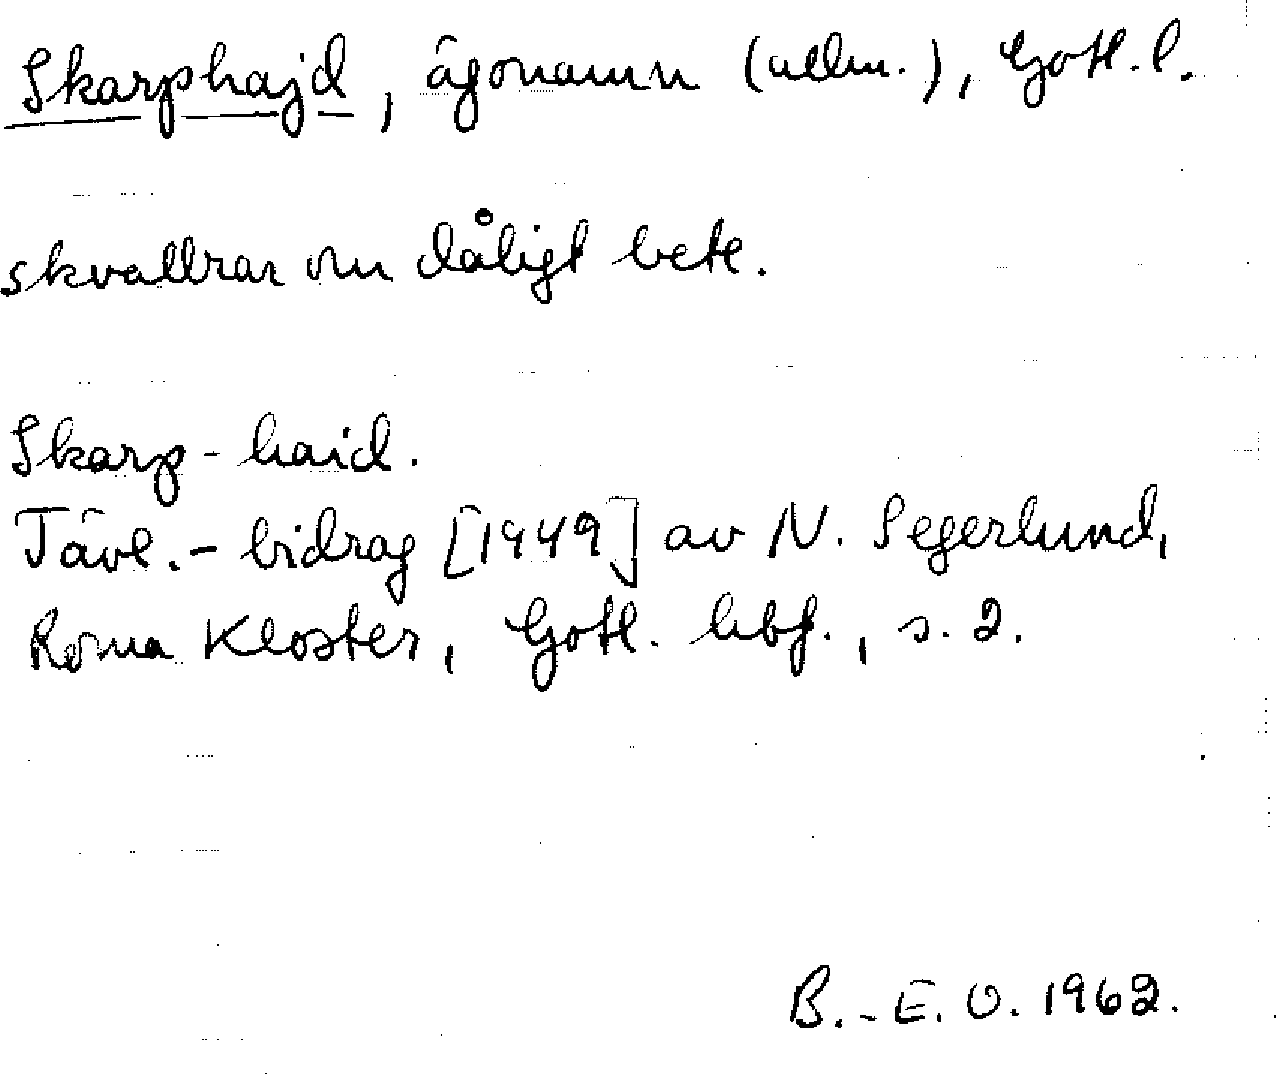 Skarphajd, ägonamn (allm.), Gotl. l.
skvallrar om dåligt bete.
Skarp-haid.
Tävl.-bidrag [1949] av N. Segerlund,
Roma Kloster, Gotl. hbf., s. 2.
B.-E. O. 1962.